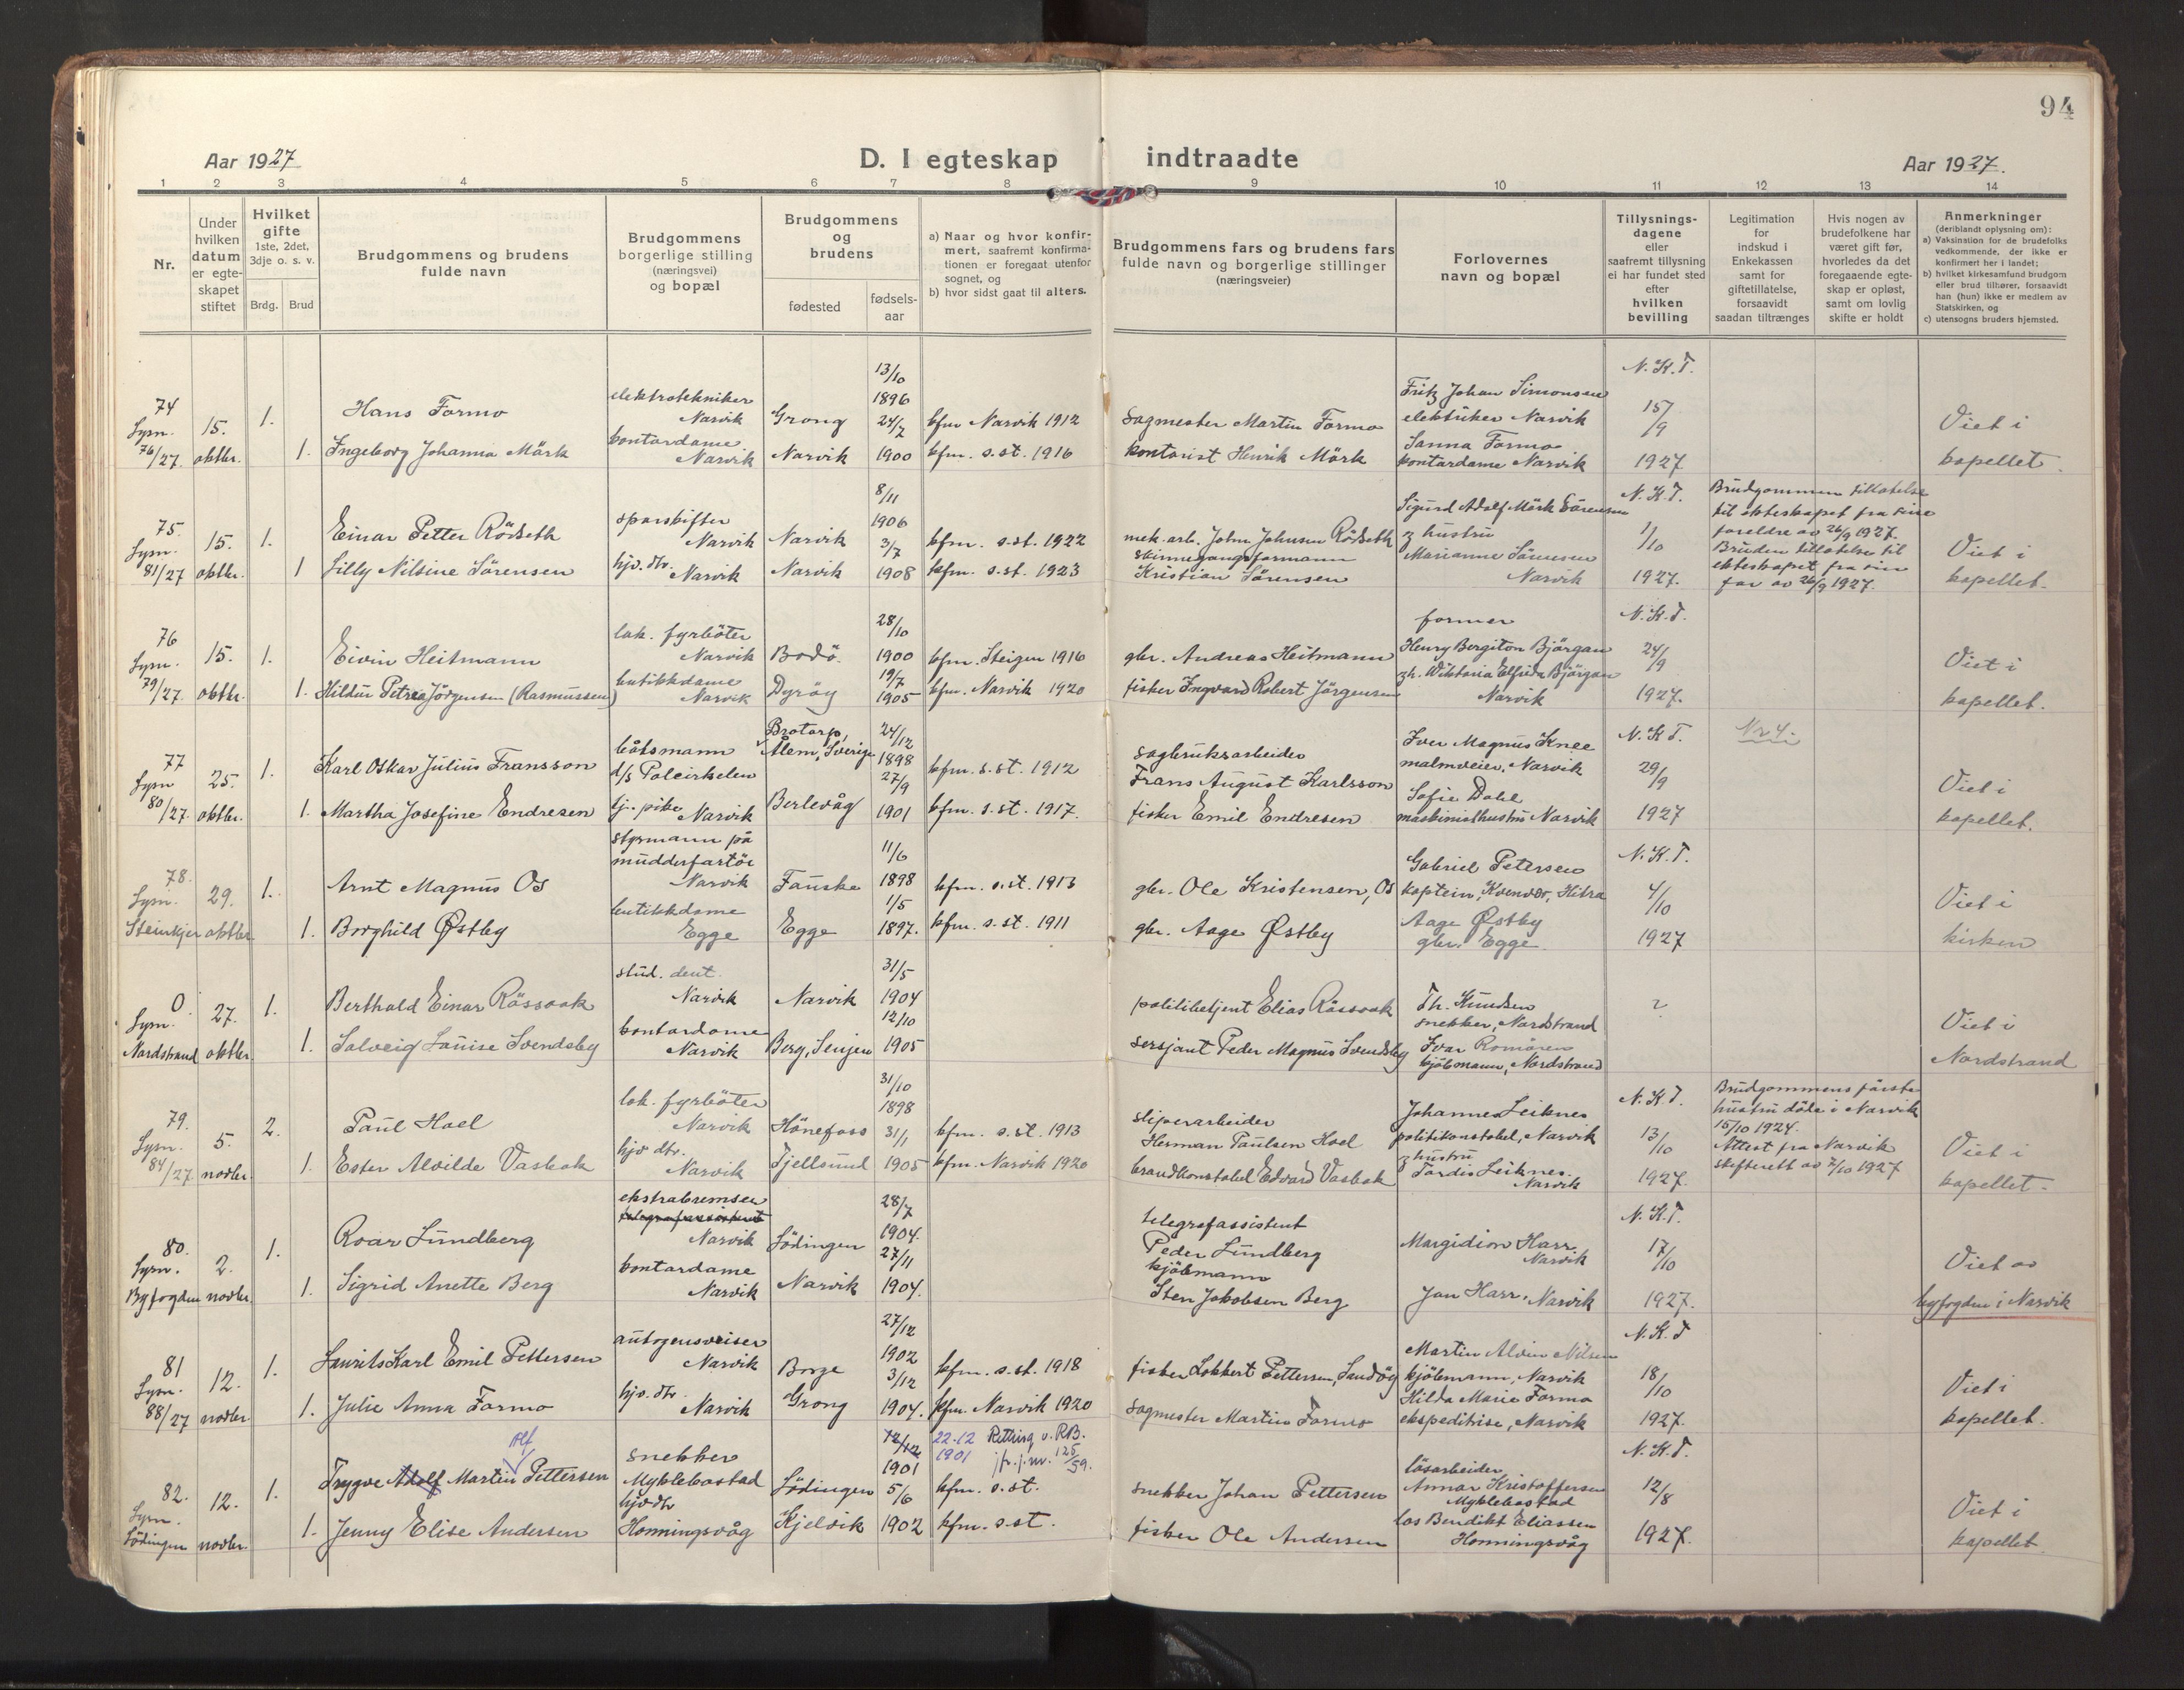 94
Aar 1927
D. I egteskap
indtraadte
Aar 1927.
1 2 3 4 5 6 7 8 9 10 11 12 13 14
Nr.
Under hvilken datum er egteskapet stiftet
Hvilket gifte
1ste, 2det, 3dje o. s. v.
Brdg. Brud
Brudgommens og brudens fulde navn
Brudgommens borgerlige stilling (næringsvei) og bopæl
Brudgommens og brudens
fødested
fødsels-aar
a) Naar og hvor konfirmert, saafremt konfirmationen er foregaat utenfor sognet, og
b) hvor sidst gaat til alters.
Brudgommens fars og brudens fars fulde navn og borgerlige stillinger (næringsveier)
Forlovernes navn og bopæl
Tillysningsdagene eller saafremt tillysning ei har fundet sted efter hvilken bevilling
Legitimation for indskud i Enkekassen samt for giftetillatelse, forsaavidt saadan tiltrænges
Hvis nogen av brudefolkene har været gift før, hvorledes da det foregaaende egteskap er opløst, samt om lovlig skifte er holdt
Anmerkninger (deriblandt oplysning om):
a) Vaksination for de brudefolks vedkommende, der ikke er konfirmert her i landet;
b) hvilket kirkesamfund brudgom eller brud tilhører, forsaavidt han (hun) ikke er medlem av Statskirken, og
c) utensogns bruders hjemsted.
74 Lysn. 76/27. 15. oktbr. 1.
Hans Formo elektrotekniker Narvik Grong 13/10 1896 kfm Narvik 1912 sagmester Martin Formo
1. Ingeborg Johanna Mörk kontordame Narvik Narvik 24/7 1900 kfm. s.st. 1916 kontorist Henrik Mörk
Fritz Johan Simonsen elektriker Narvik
Sanna Formo kontordame Narvik
N.K.T. 15/9 1927
Viet i kapellet.
75. Lysn. 81/27 15. oktbr. 1.
Einar Petter Rödseth sporskifter Narvik Narvik 8/11 1906 kfm. s.st. 1922 mek. arb. John Johnsen Rödseth
1 Lilly Nilsine Sörensen hjv. dtr. Narvik Narvik 3/7 1908 kfm. s.st. 1923 skinnegangsformann Kristian Sörensen
Sigurd Adolf Mörk Sörensen
g hustru
Marianne Sörensen
Narvik
N.K.T. 1/10 1927.
Brudgommen tillatelse
til ekteskapet fra sine
foreldre av 26/9 1927.
Bruden tillatelse til
ekteskapet fra sin
far av 26/9 1927.
Viet i kapellet.
76 Lysn. 79/27. 15. oktbr. 1.
Eivin Heitmann lok. fyrböter Narvik Bodö. 28/10 1900 kfm. Steigen 1916 gbr. Andreas Heitmann
1. Hildur Petrea Jörgensen (Rasmussen) butikkdame Narvik Dyröy 19/7 1905 kfm. Narvik 1920 fisker Ingvard Robert Jörgensen
former
Henry Bergiton Björgan
g h. Wiktoria Elfrida Björgan
Narvik
N.K.T. 24/9 1927.
Viet i kapellet.
77 Lysn 80/27. 25. oktbr. 1.
Karl Oskar Julius Fransson båtsmann d/s Polcirkelen Brotorp, Ålem, Sverige 24/12 1898 kfm. s.st. 1912 sagbruksarbeider Frans August Karlsson
1. Martha Josefine Endresen tj. pike Narvik Berlevåg 27/9 1901 kfm. s.st. 1917. fisker Emil Endresen
Iver Magnus Knee
malmveier, Narvik
Sofie Dahl
maskinisthustru Narvik
N.K.T. 29/9 1927
Nr 4.
Viet i kapellet.
78. Lysn. Steinkjer 29. oktbr. 1.
Arnt Magnus Os styrmann på mudderfartöi Narvik Fauske 11/6 1898 kfm. s.st. 1913 gbr. Ole Kristensen, Os
1. Borghild Østby butikkdame Egge Egge 1/5 1897. kfm. s.st. 1911 gbr. Aage Østby
Gabriel Petersen
kaptein, Kvenvær, Hitra
Aage Østby
gbr. Egge.
N.K.T. 4/10 1927
Viet i kirken
0 Lysn. Nordstrand 27. oktbr. 1.
Berthold Einar Rössvok stud. dent. Narvik Narvik 31/5 1904 politibetjent Elias Rössvok
1. Solveig Louise Svendsby kontordame Narvik Berg, Senjen 12/10 1905 sersjant Peder Magnus Svendsby
Th. Knudsen
snekker, Nordstrand
Ivar Romören
kjöbmann, Nordstrand
?
Viet i Nordstrand
79. Lysn. 84/27 5. novbr. 2.
Paul Hoel lok. fyrböter Narvik Hönefoss 31/10 1898 kfm. s.st. 1913 sliperarbeider Herman Paulsen Hoel
1. Ester Alvilde Vasbak hjv dtr. Narvik Tjellsund 31/1 1905 kfm. Narvik 1920 brandkonstabel Edvard Vasbak
Johannes Leiknes
politikonstabel, Narvik
g hustru
Tordis Leiknes.
Narvik
N.K.T. 13/10 1927.
Brudgommens förste
hustru döde i Narvik
15/10 1924.
Attest fra Narvik
skifterett av 7/10 1927
Viet i kapellet.
80. Lysn. Byfogden 2. novbr. 1.
Roar Lundberg ekstrabremser telegrafassistent Narvik Lödingen 28/7 1904. telegrafassistent Peder Lundberg
1. Sigrid Anette Berg kontordame Narvik Narvik 27/11 1904. kjöbmann Sten Jakobsen Berg
Margidion Harr.
Narvik
Jan Harr, Narvik
N.K.T. 17/10 1927.
Viet av byfogden i Narvik
81 Lysn. 88/27 12. novbr. 1.
Laurits Karl Emil Pettersen autogensveiser Narvik Borge 27/12 1902 kfm. s.st. 1918 fisker Lokkert Pettersen, Sandöy
1. Julie Anna Formo hjv. dtr. Narvik Grong 3/12 1904. kfm. Narvik 1920 sagmester Martin Formo
Martin Alvin Nilsen
kjöbmann, Narvik
Hilda Marie Formo
ekspeditrise, Narvik
N.K.T 18/10 1927.
Viet i kapellet.
82. Lysn. Lödingen 12. novbr. 1.
Trygve Adolf Alf Martin Pettersen snekker Myklebostad Lödingen 12/12 1901 22.12 1901 Retting v. RB. jfr. j.nr. 125/59. kfm. s.st. snekker Johan Pettersen
1. Jenny Elise Andersen hjv dtr Honningsvåg Kjelvik 5/6 1902 kfm. s.st. fisker Ole Andersen
lösarbeider
Annar Kristoffersen
Myklebostad
los Bendikt Eliassen
Honningsvåg
N.K.T. 12/8 1927.
Viet i kapellet.